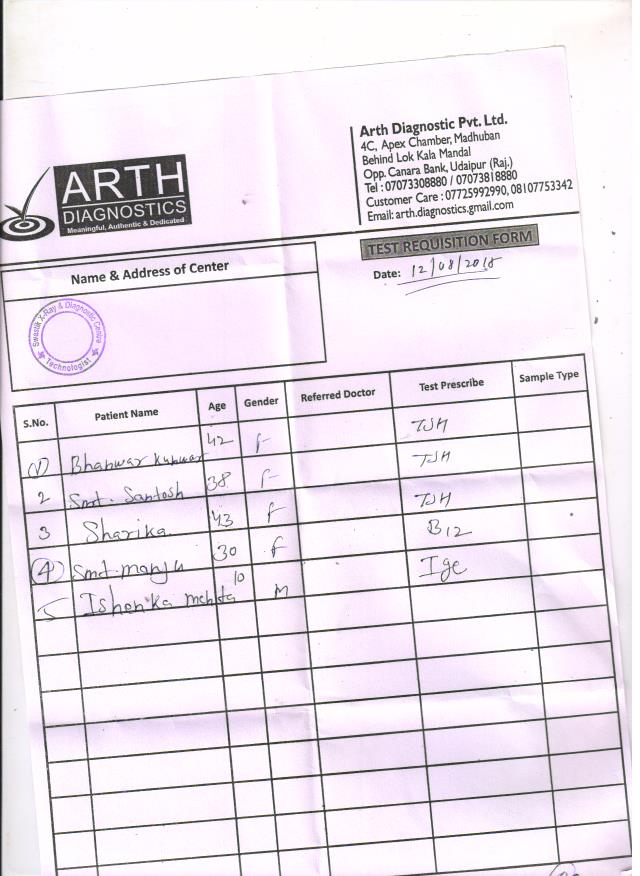 ARTH
DIAGNOSTICS
Meaningful, Authentic & Dedicated
Arth Diagnostic Pvt. Ltd.
4C, Apex Chamber, Madhuban
Behind Lok Kala Mandal
Opp. Canara Bank, Udaipur (Raj.)
Tel : 07073308880 / 07073818880
Customer Care : 07725992990, 08107753342
Email: arth.diagnostics.gmail.com
TEST REQUISITION FORM
Date: 12/08/2018
Name & Address of Center
Swastik X-Ray & Diagnostic Centre
Technologist
S.No. Patient Name Age Gender Referred Doctor Test Prescribe Sample Type
1 Bhanwar Kunwar 42 F TSH
2 Smt. Santosh 38 F TSH
3 Sharika 43 F TSH
4 Smt. manju 30 F B12
5 Ishenka mehta 10 M Ige